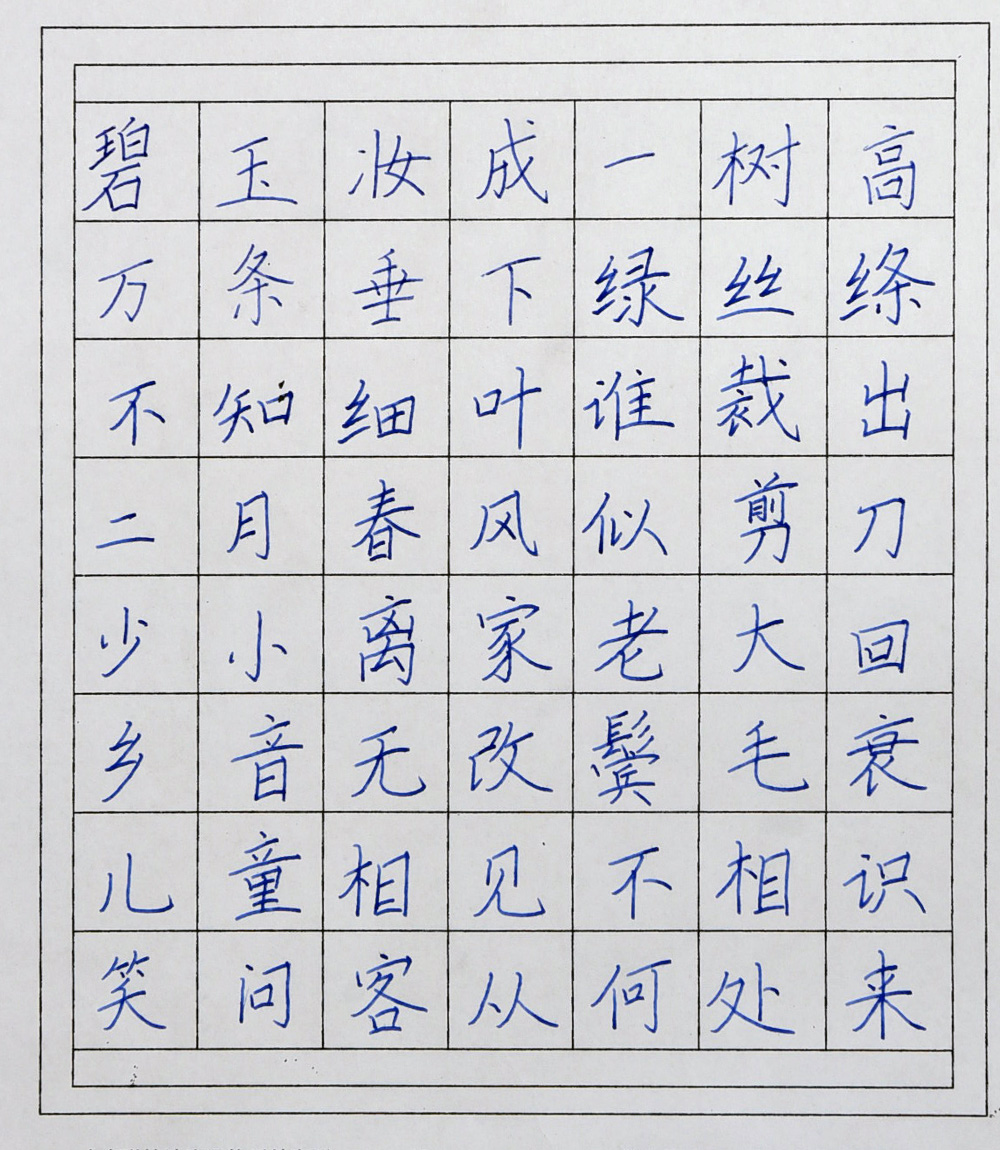 碧玉妆成一树高
万条垂下绿丝绦
不知细叶谁裁出
二月春风似剪刀
少小离家老大回
乡音无改鬓毛衰
儿童相见不相识
笑问客从何处来